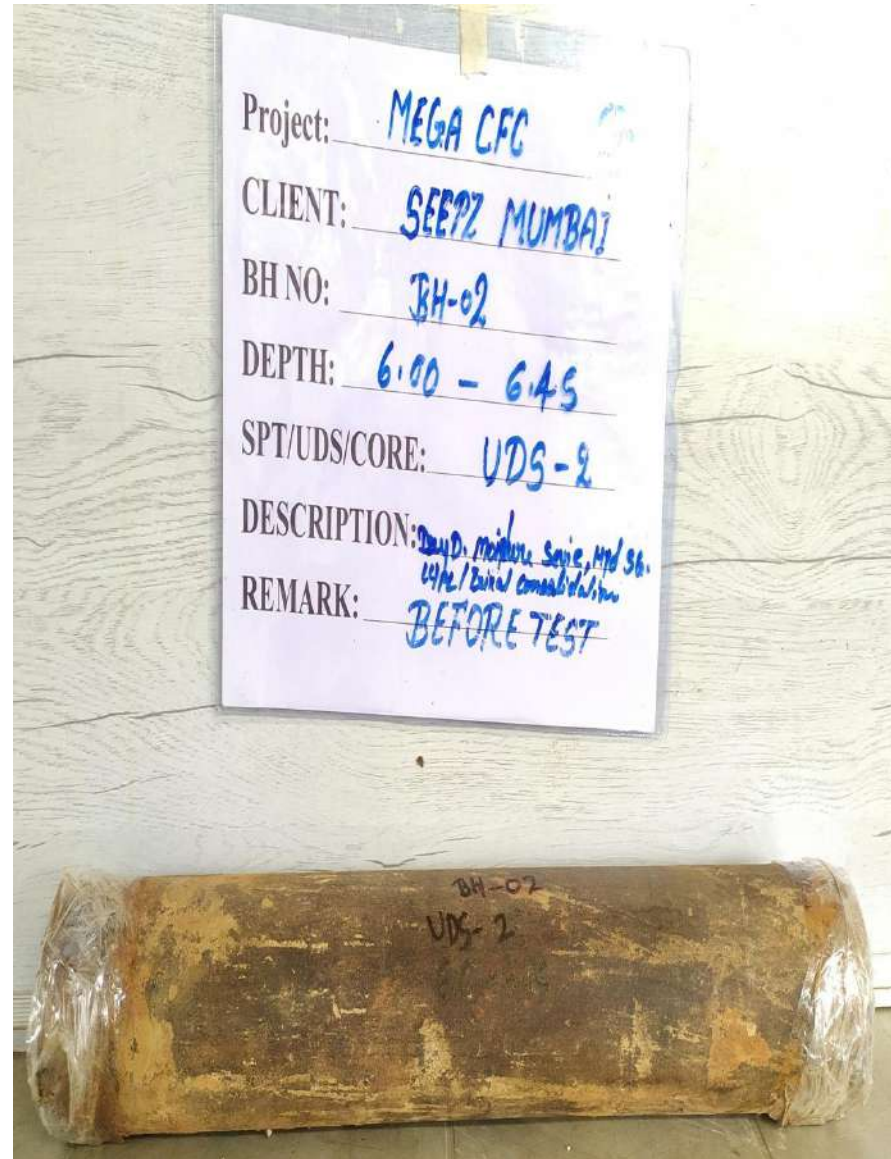 Project: MEGA CFC
CLIENT: SEEPZ MUMBAI
BH NO: BH-02
DEPTH: 6.00 - 6.45
SPT/UDS/CORE: UDS-2
DESCRIPTION: D. Moisture
consolidation
REMARK: BEFORE TEST
BH-02
UDS-2